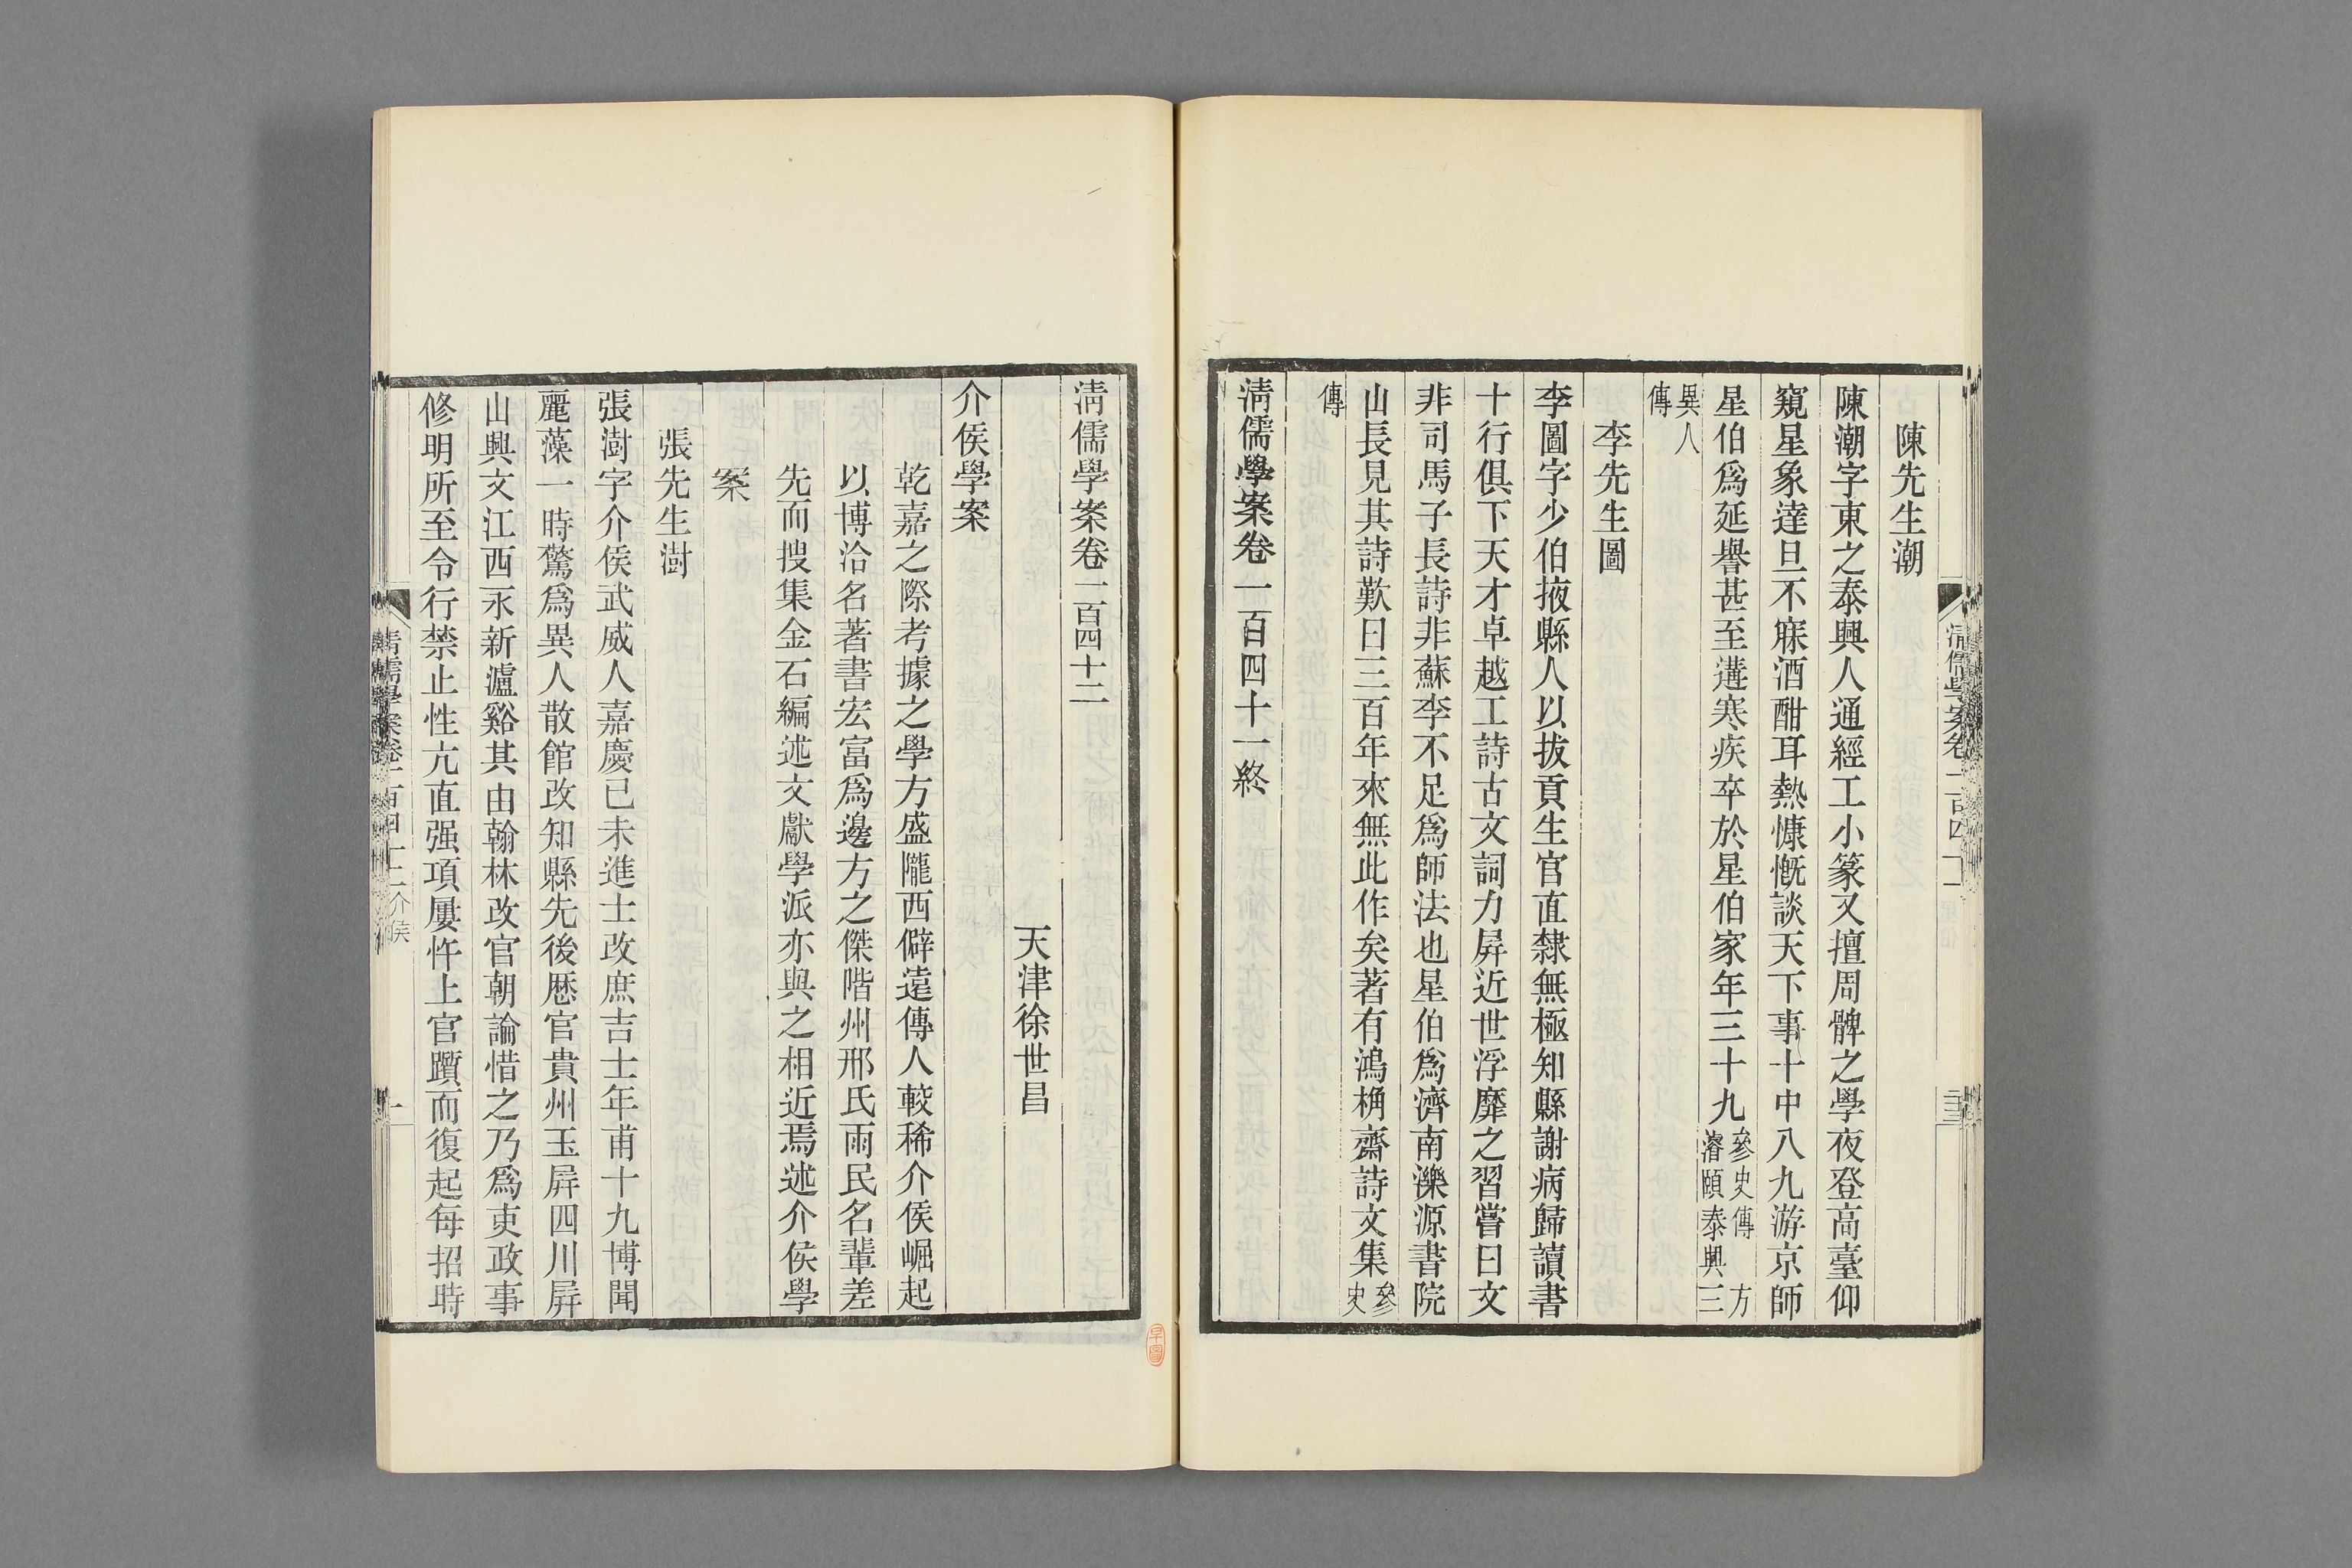 陳先生潮
陳潮字東之泰興人通經工小篆又擅周髀之學夜登高臺仰
窺星象達旦不寐酒酣耳熱慷慨談天下事十中八九游京師
星伯爲延譽甚至遘寒疾卒於星伯家年三十九參史傳　方
濬頤泰興三
異人
傳
李先生圖
李圖字少伯掖縣人以拔貢生官直隸無極知縣謝病歸讀書
十行俱下天才卓越工詩古文詞力屏近世浮靡之習嘗曰文
非司馬子長詩非蘇李不足爲師法也星伯爲濟南濼源書院
山長見其詩歎曰三百年來無此作矣著有鴻桷齋詩文集參
史
傳
清儒學案卷一百四十一終
清儒學案卷一百四十二
天津徐世昌
介侯學案
乾嘉之際考據之學方盛隴西僻遠傳人較稀介侯崛起
以博洽名著書宏富爲邊方之傑階州邢氏雨民名輩差
先而搜集金石編述文獻學派亦與之相近焉述介侯學
案
張先生澍
張澍字介侯武威人嘉慶己未進士改庶吉士年甫十九博聞
麗藻一時驚爲異人散館改知縣先後歷官貴州玉屏四川屏
山興文江西永新瀘谿其由翰林改官朝論惜之乃爲吏政事
修明所至令行禁止性亢直强項屢忤上官躓而復起每招時
清儒學案卷一百四十二　介侯
一